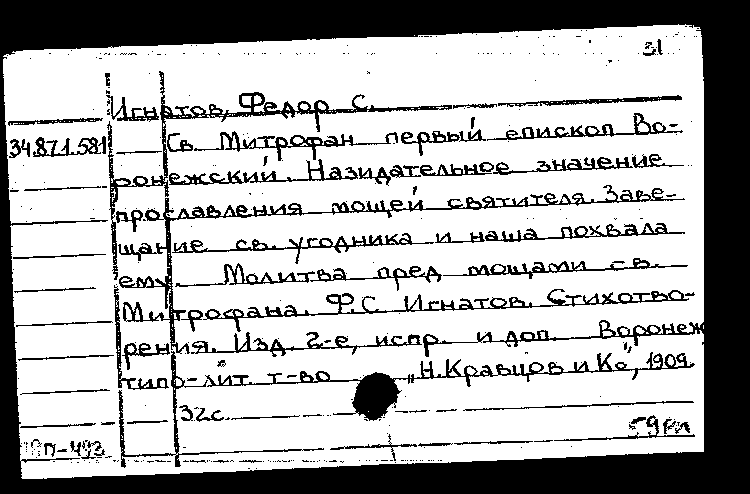 31
Игнатов, Федор С.
34.871.581 Св. Митрофан первый епископ Во-
ронежский. Назидательное значение
прославления мощей святителя. Заве-
щание св. угодника и наша похвала
ему. Молитва пред мощами св.
Митрофана. Ф.С Игнатов. Стихотво-
рения. Изд. 2-е, испр. и доп. Воронеж
типо-лит. т-во „Н.Кравцов и Ко", 1909.
32с.